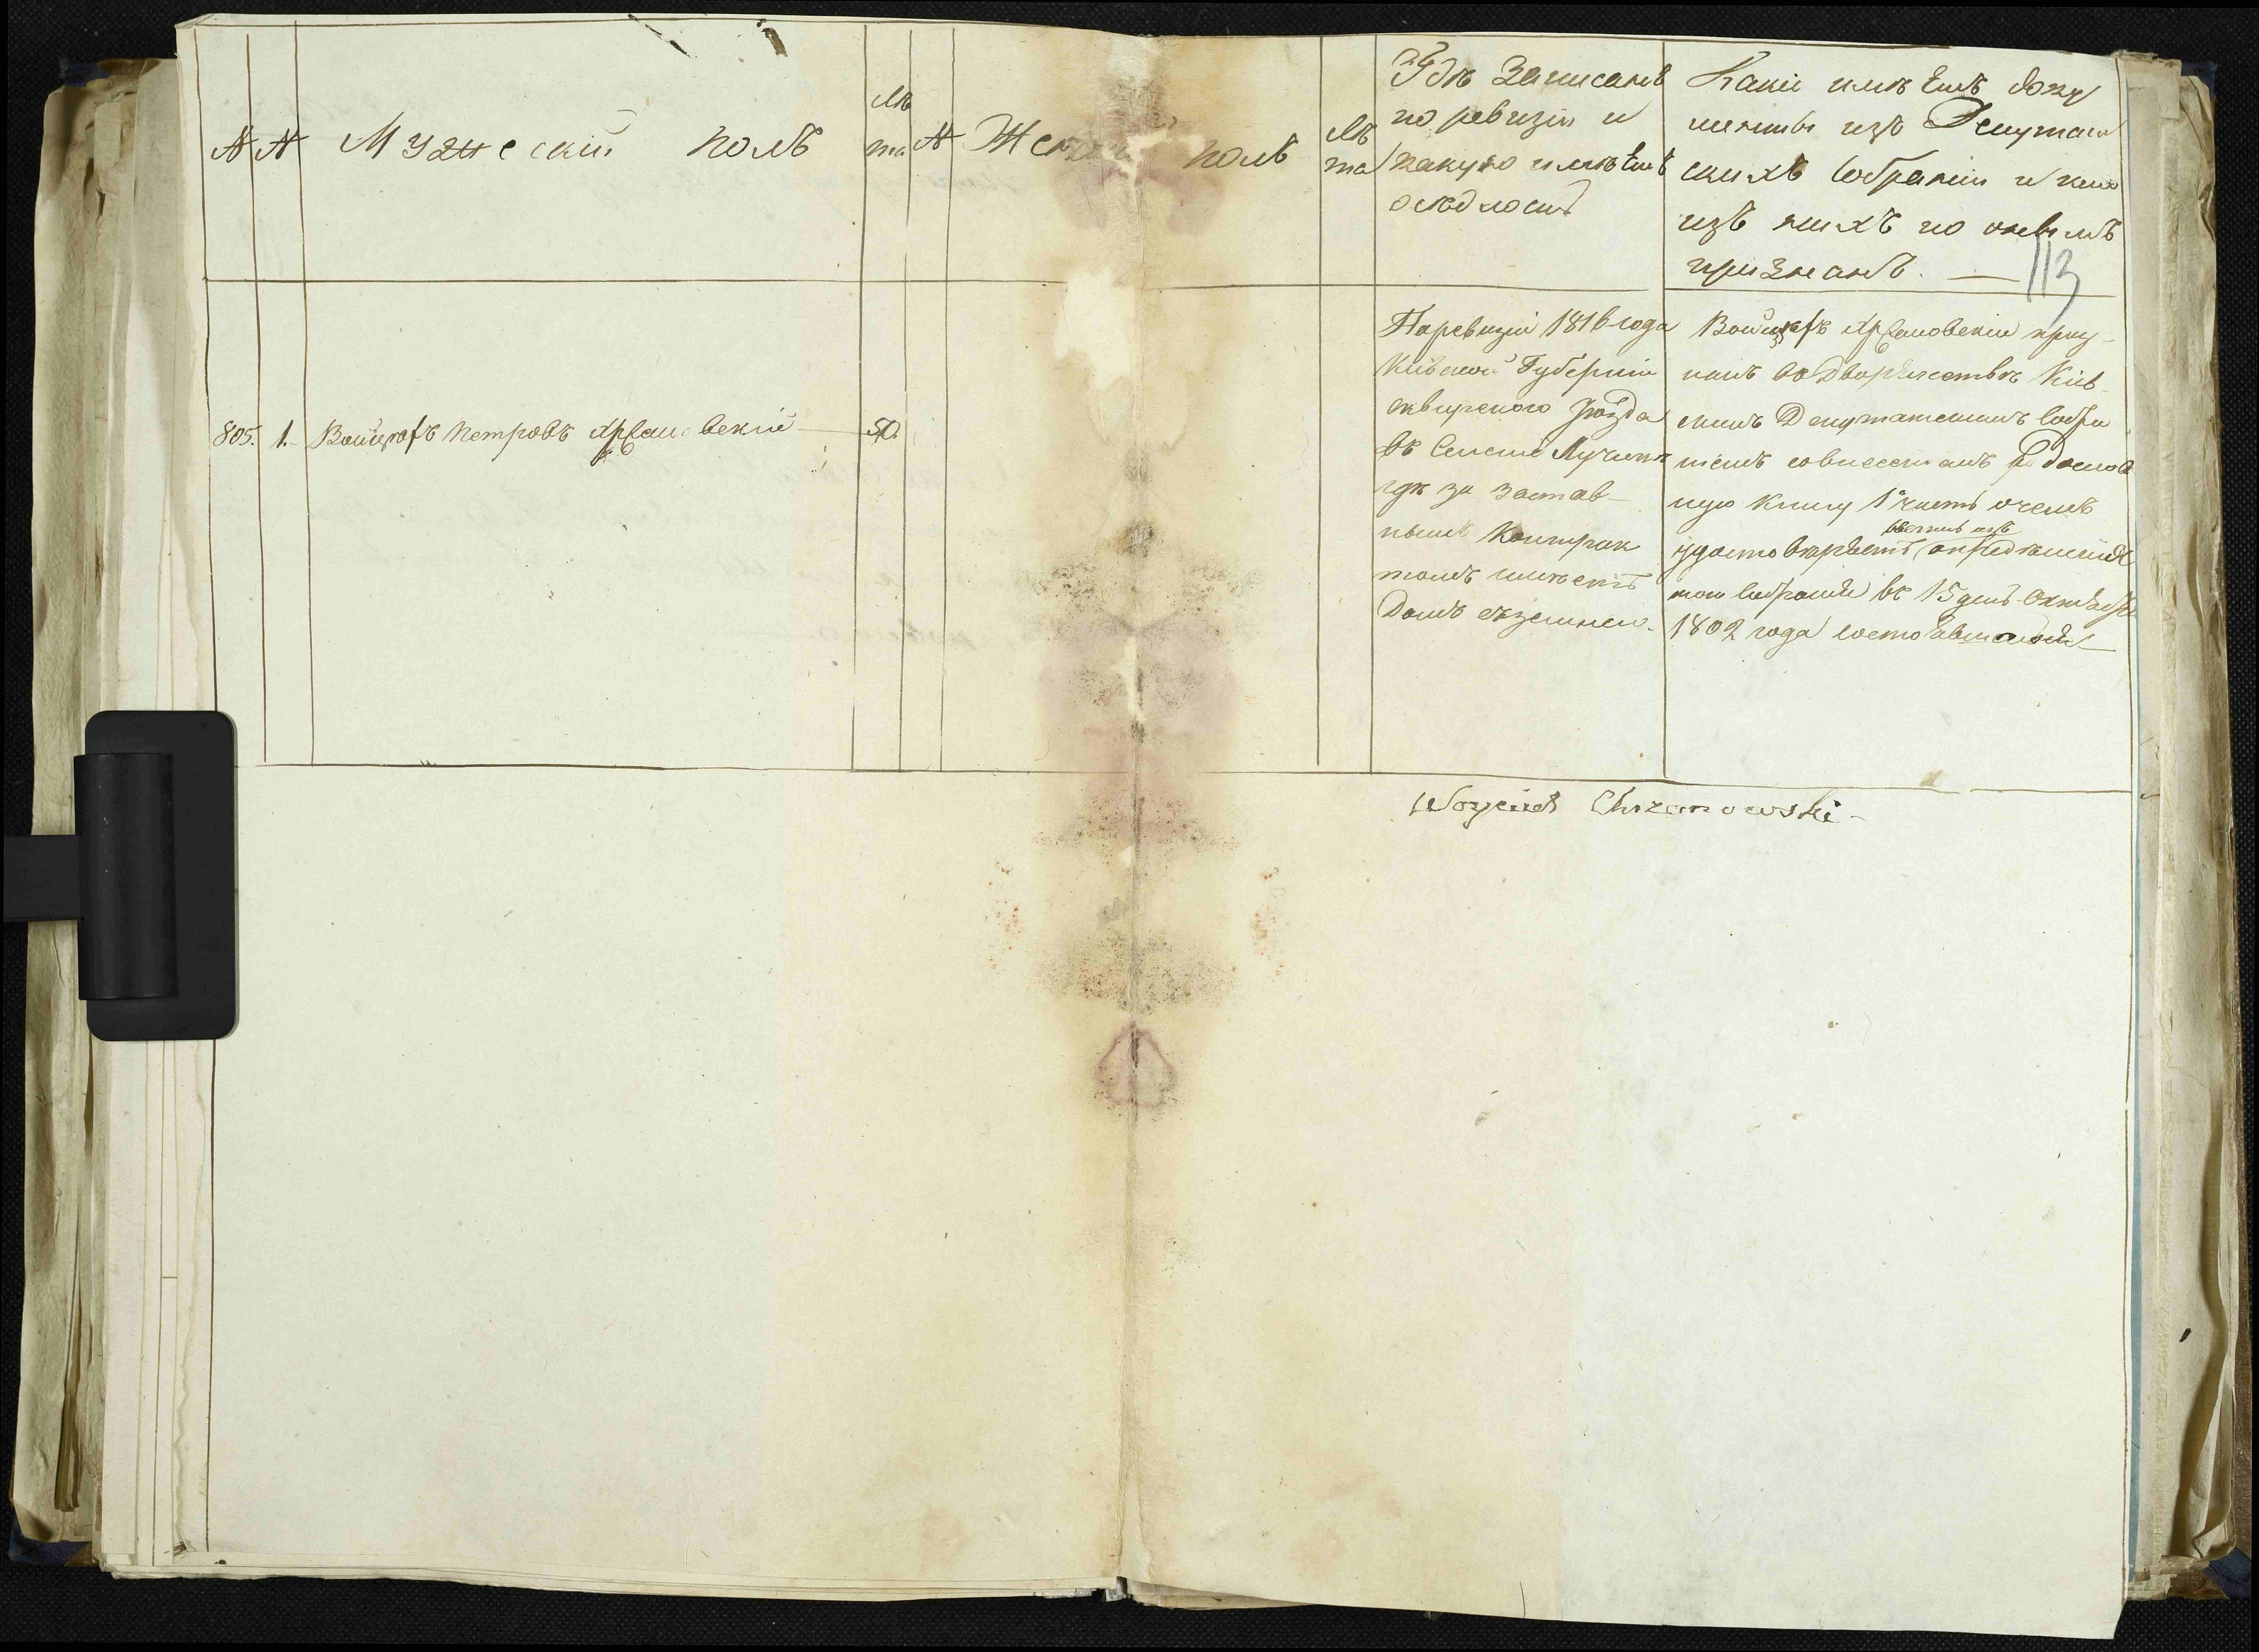 № № Мужескій полъ
лѣ
та
№ Женскій полъ
лѣ
та
Гдѣ записанъ
по ревизіи и
какую имѣетъ
оседлость
Какіе имѣетъ доку
менты изъ Депутат
скихъ Собраній и кто
изъ нихъ по онымъ
признанъ. —
113
805. 1. Войцехъ Петровъ Хржановскій — 50.
По ревизіи 1816 года
Кіевской Губерніи
Сквирского Уѣзда
въ Селеніи Лучинѣ
гдѣ за застав-
нымъ контрак
томъ имѣетъ
Домъ с землею.
Войцехъ Хржановскій приз-
нанъ въ Дворянствѣ Кіев
скимъ Депутатскимъ Собра
ніемъ со внесеніемъ въ родослов
ную книгу 1ю часть о чемъ
удостовѣряетъ опредѣленія
того Собранія въ 15 день Октября
1802 года состоявшагося
Woyciech Chrzanowski -